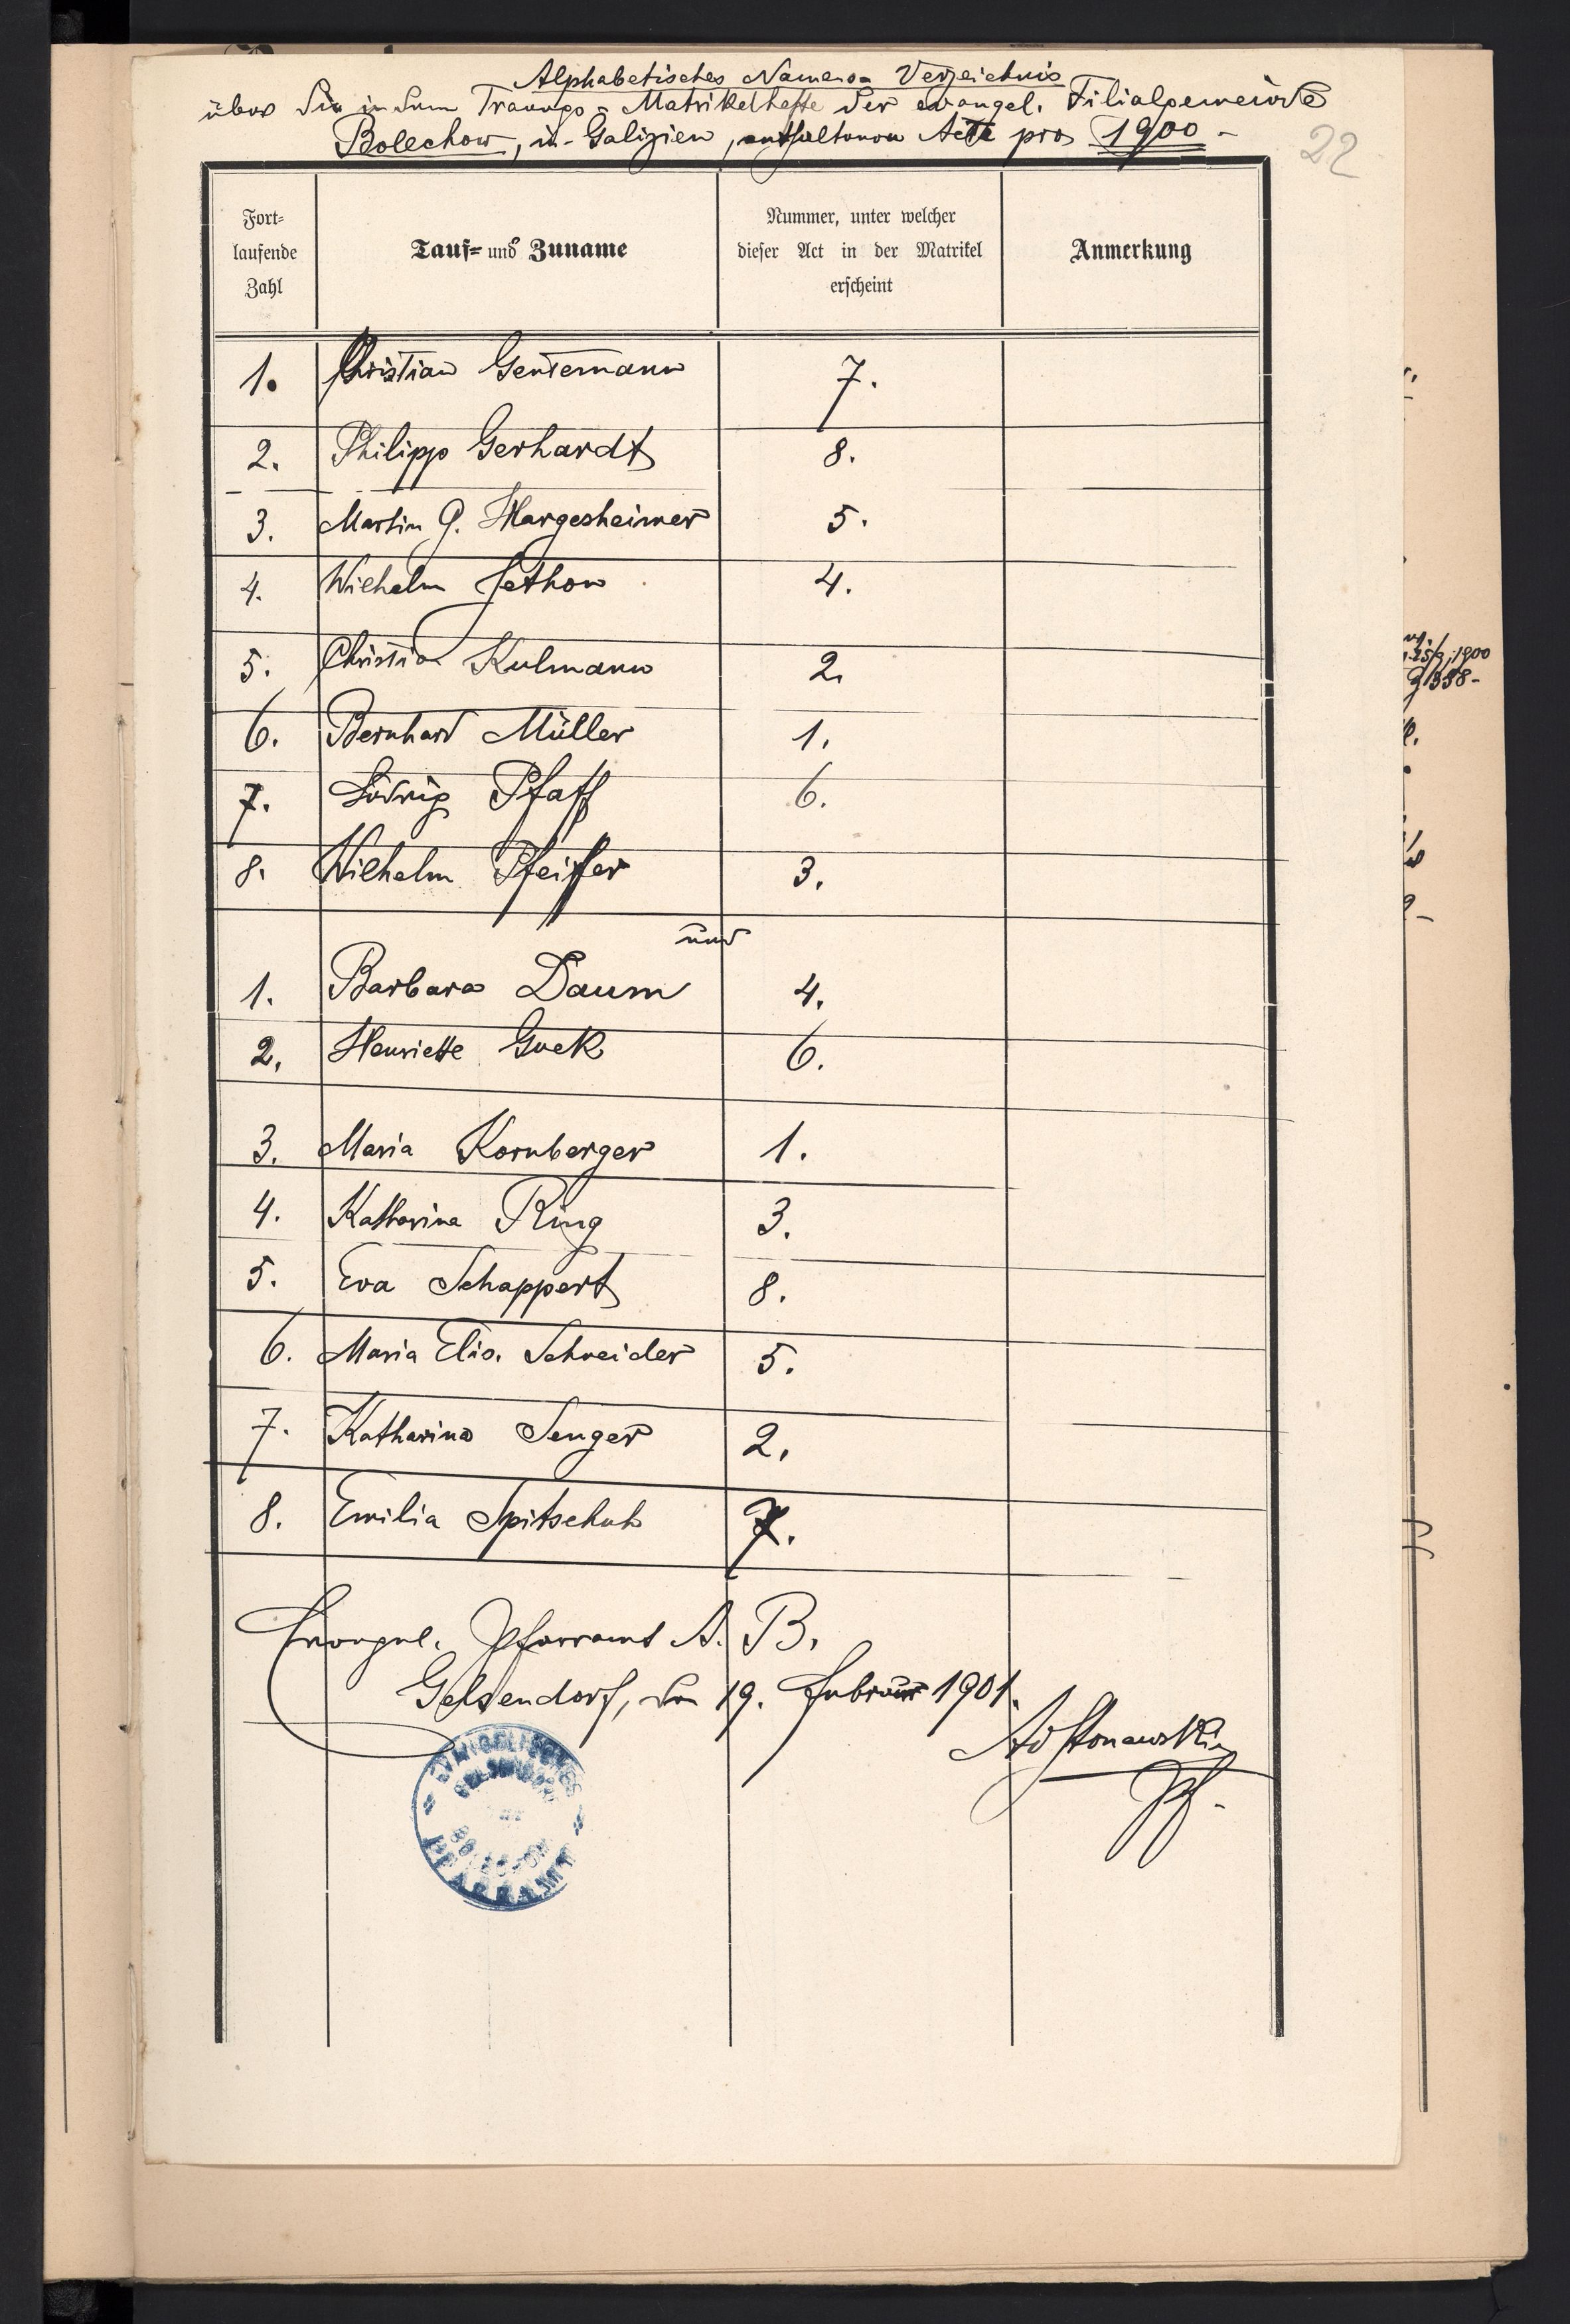 Alphabetisches Namens-Verzeichnis
über die in dem Trauungs-Matrikelhefte der evangel. Filialgemeinde
Bolechow, in Galizien, enthaltenen Acte pro 1900 -
22
Fort-
laufende
Zahl
Tauf- und Zuname
Nummer, unter welcher
dieser Act in der Matrikel
erscheint
Anmerkung
1. Christian Gentemann 7.
2. Philipp Gerhardt 8.
3. Martin G. Hargesheimer 5.
4. Wilhelm Jethon 4.
5. Christian Kulmann 2.
6. Bernhard Müller 1.
7. Ludwig Pfaff 6.
8. Wilhelm Pfeiffer 3.
und
1. Barbara Daum 4.
2. Henriette Guck 6.
3. Maria Kornberger 1.
4. Katharina Ring 3.
5. Eva Schappert 8.
6. Maria Elis. Schneider 5.
7. Katharina Senger 2.
8. Emilia Spitschuh 7.
Evangel. Pfarramt A. B.
Gelsendorf, den 19. Februar 1901.
Pf.
PFARRAMT
1900